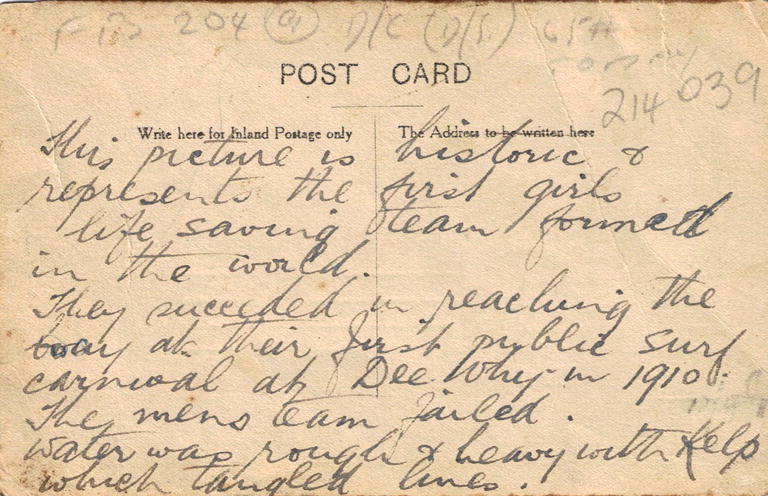 214039
POST CARD
Write here for Inland Postage only
The Address to be written here
This picture is historic &
represents the first girls
life saving team formed
in the world.
They succeeded in reaching the
buoy at their first public surf
carnival at Dee Why in 1910.
The mens team failed.
water was rough & heavy with Kelp
which tangled lines.